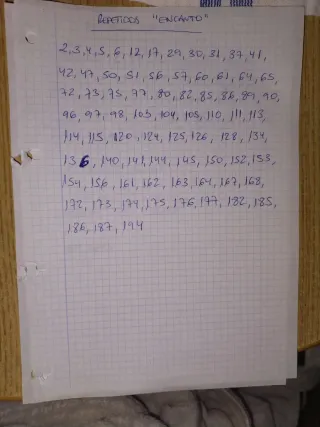 REPETIDOS "ENCANTO"
2, 3, 4, 5, 6, 12, 17, 29, 30, 31, 37, 41,
42, 47, 50, 51, 56, 57, 60, 61, 64, 65,
72, 73, 75, 77, 80, 82, 85, 86, 89, 90,
96, 97, 98, 103, 104, 105, 110, 111, 113,
114, 115, 120, 124, 125, 126, 128, 134,
136, 140, 141, 144, 145, 150, 152, 153,
154, 156, 161, 162, 163, 164, 167, 168,
172, 173, 174, 175, 176, 177, 182, 185,
186, 187, 194